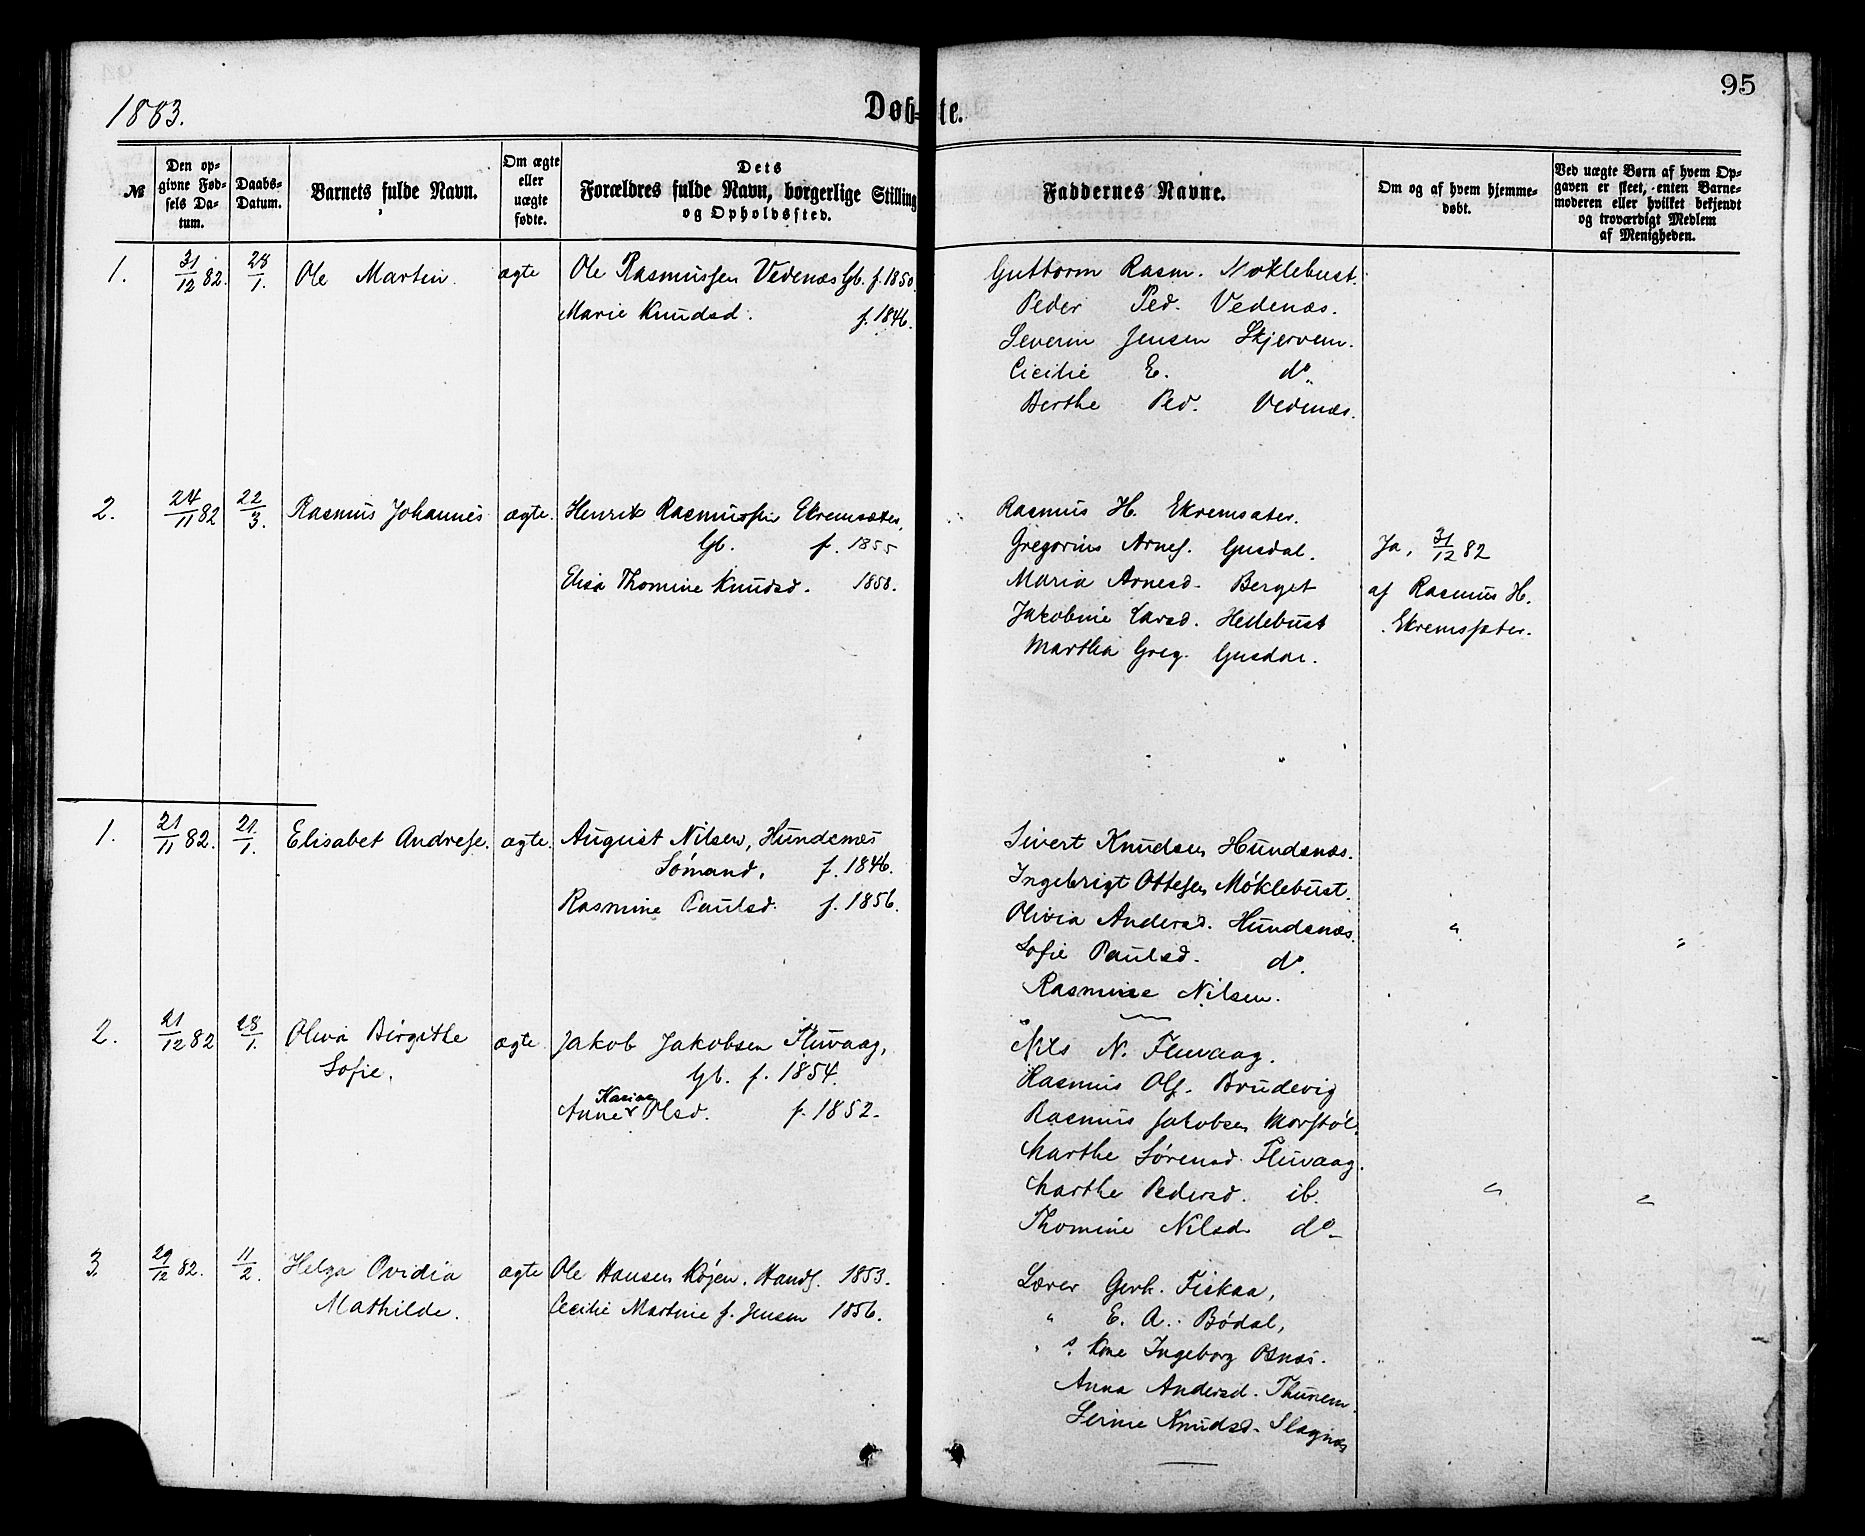 95
1883.
Døb-te.
№
Den opgivne Fødsels Datum.
Daabs-Datum.
Barnets fulde Navn.
Om ægte eller uægte fødte.
Dets Forældres fulde Navn, borgerlige Stilling og Opholdssted.
Faddernes Navne.
Om og af hvem hjemmedøbt.
Ved uægte Børn af hvem Opgaven er skeet, enten Barnemoderen eller hvilket bekjendt og troværdigt Medlem af Menigheden.
1. 31/12 82. 28/1. Ole Martin. ægte Ole Rasmussen Vedenæs Gb. f. 1850.
Marie Knudsd. f. 1846.
Guttorm Rasm. Moklebust.
Peder Ped. Vedenæs.
Severin Jensen Skjervem.
Cicilie E. do
Berthe Ped. Vedenæs.
2. 24/11 82 22/3. Rasmus Johannes ægte. Henrik Rasmussen Ekremsæter,
Gb. f. 1855
Elisa Thomine Knudsd. 1850.
Rasmus H. Ekremsæter.
Gregorius Arnes. Gusdal.
Maria Arnesd. Berget
Jakobine Larsd. Hellebust
Martha Greg. Gusdal.
Ja, 31/12 82
af Rasmus H.
Ekremsæter.
1. 21/11 82. 21/1. Elisabet Andrese. ægte. August Nilsen, Hundsnæs
Sømand. f. 1846.
Rasmine Paulsd. f. 1856.
Sivert Knudsen Hundsnæs.
Ingebrigt Ottesen Møklebust.
Olivia Andersd. Hundsnæs.
Sofie Paulsd. do.
Rasmine Nilsen.
" "
2. 21/12 82 28/1. Oliva Birgithe ægte Jakob Jakobsen Fluvaag,
Sofie.
Gb. f. 1854.
Karine
Anne v Olsd. f. 1852.
Nils N. Fluvaag.
Rasmus Ols. Brudevig
Rasmus Jakobsen Morstøl.
Marthe Sørensd. Fluvaag.
Marthe Pedersd. ib.
Thomine Nilsd. do
" "
3. 29/12 82. 11/2. Helga Ovidia ægte Ole Hansen Køjen. Handl. 1853.
Mathilde.
Cecilie Martine f. Jensen 1856.
Lærer Gerh. Fiskaa,
" E. A. Bødal,
" s. Kone Ingeborg Osnæs.
Anna Andersd. Thunem.
Serine Knudsd. Slagnæs